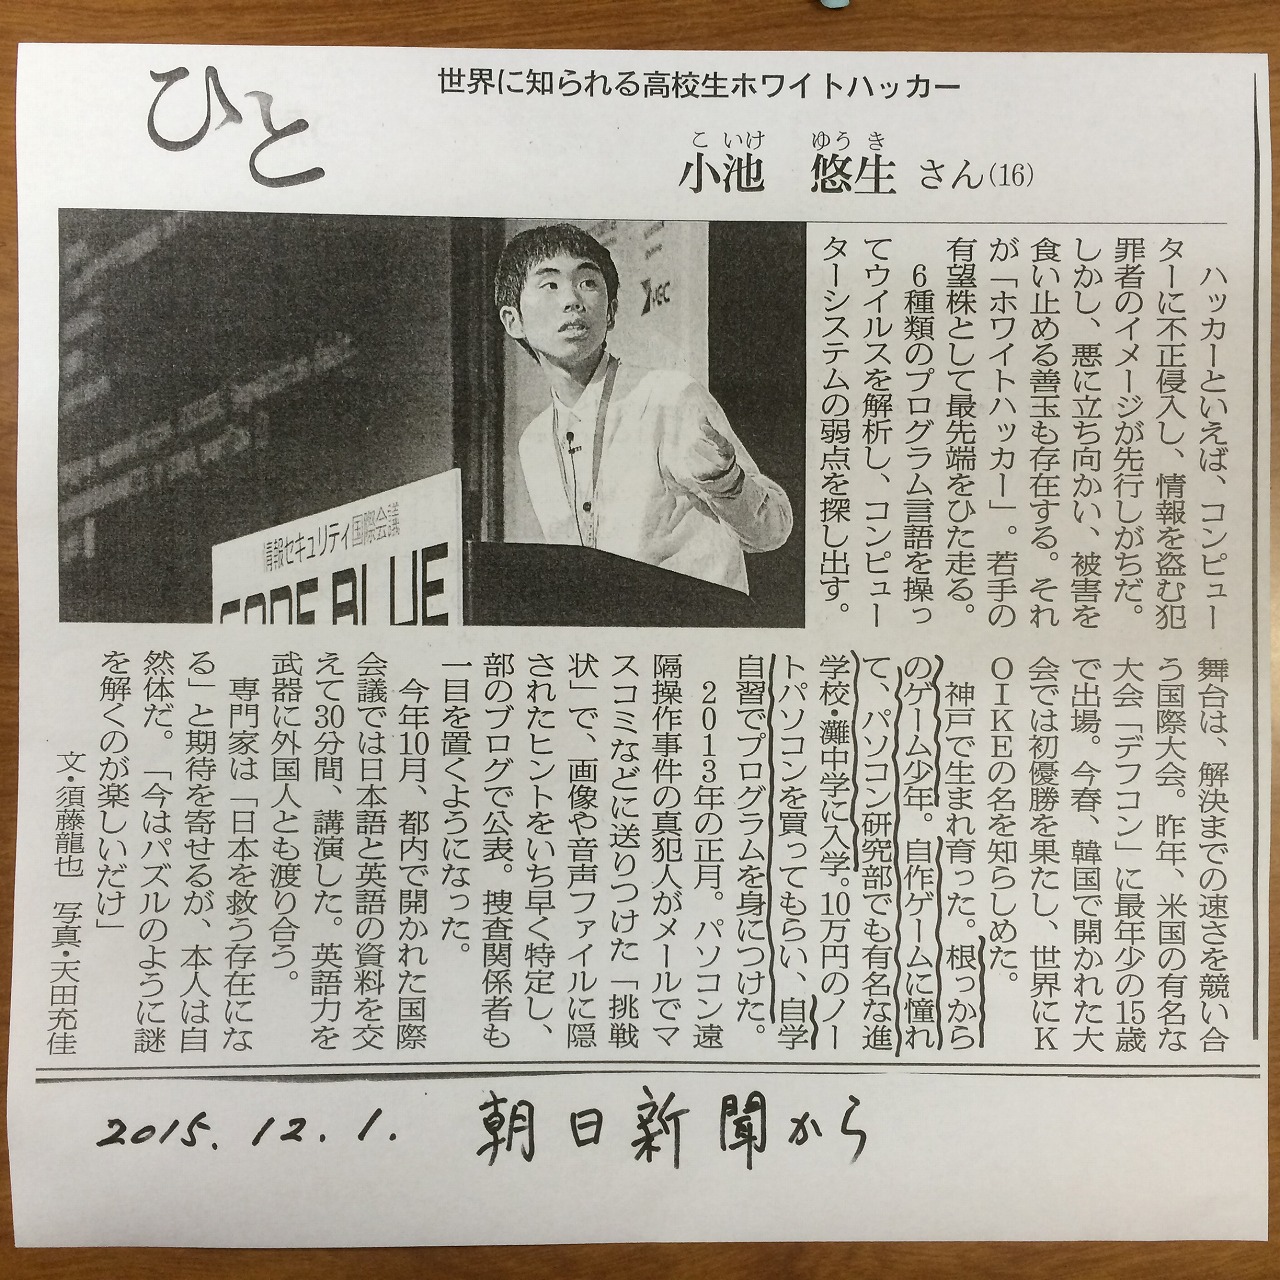 ひと
世界に知られる高校生ホワイトハッカー
こ いけ ゆう き
小池 悠生 さん(16)
ハッカーといえば、コンピュー
ターに不正侵入し、情報を盗む犯
罪者のイメージが先行しがちだ。
しかし、悪に立ち向かい、被害を
食い止める善玉も存在する。それ
が「ホワイトハッカー」。若手の
有望株として最先端をひた走る。
6種類のプログラム言語を操っ
てウイルスを解析し、コンピュー
ターシステムの弱点を探し出す。
NEC
情報セキュリティ国際会議
CODE BLUE
舞台は、解決までの速さを競い合
う国際大会。昨年、米国の有名な
大会「デフコン」に最年少の15歳
で出場。今春、韓国で開かれた大
会では初優勝を果たし、世界にK
OIKEの名を知らしめた。
神戸で生まれ育った。根っから
のゲーム少年。自作ゲームに憧れ
て、パソコン研究部でも有名な進
学校・灘中学に入学。10万円のノー
トパソコンを買ってもらい、自学
自習でプログラムを身につけた。
2013年の正月。パソコン遠
隔操作事件の真犯人がメールでマ
スコミなどに送りつけた「挑戦
状」で、画像や音声ファイルに隠
されたヒントをいち早く特定し、
部のブログで公表。捜査関係者も
一目を置くようになった。
今年10月、都内で開かれた国際
会議では日本語と英語の資料を交
えて30分間、講演した。英語力を
武器に外国人とも渡り合う。
専門家は「日本を救う存在にな
る」と期待を寄せるが、本人は自
然体だ。「今はパズルのように謎
を解くのが楽しいだけ」
文・須藤龍也 写真・天田充佳
2015.12.1. 朝日新聞から